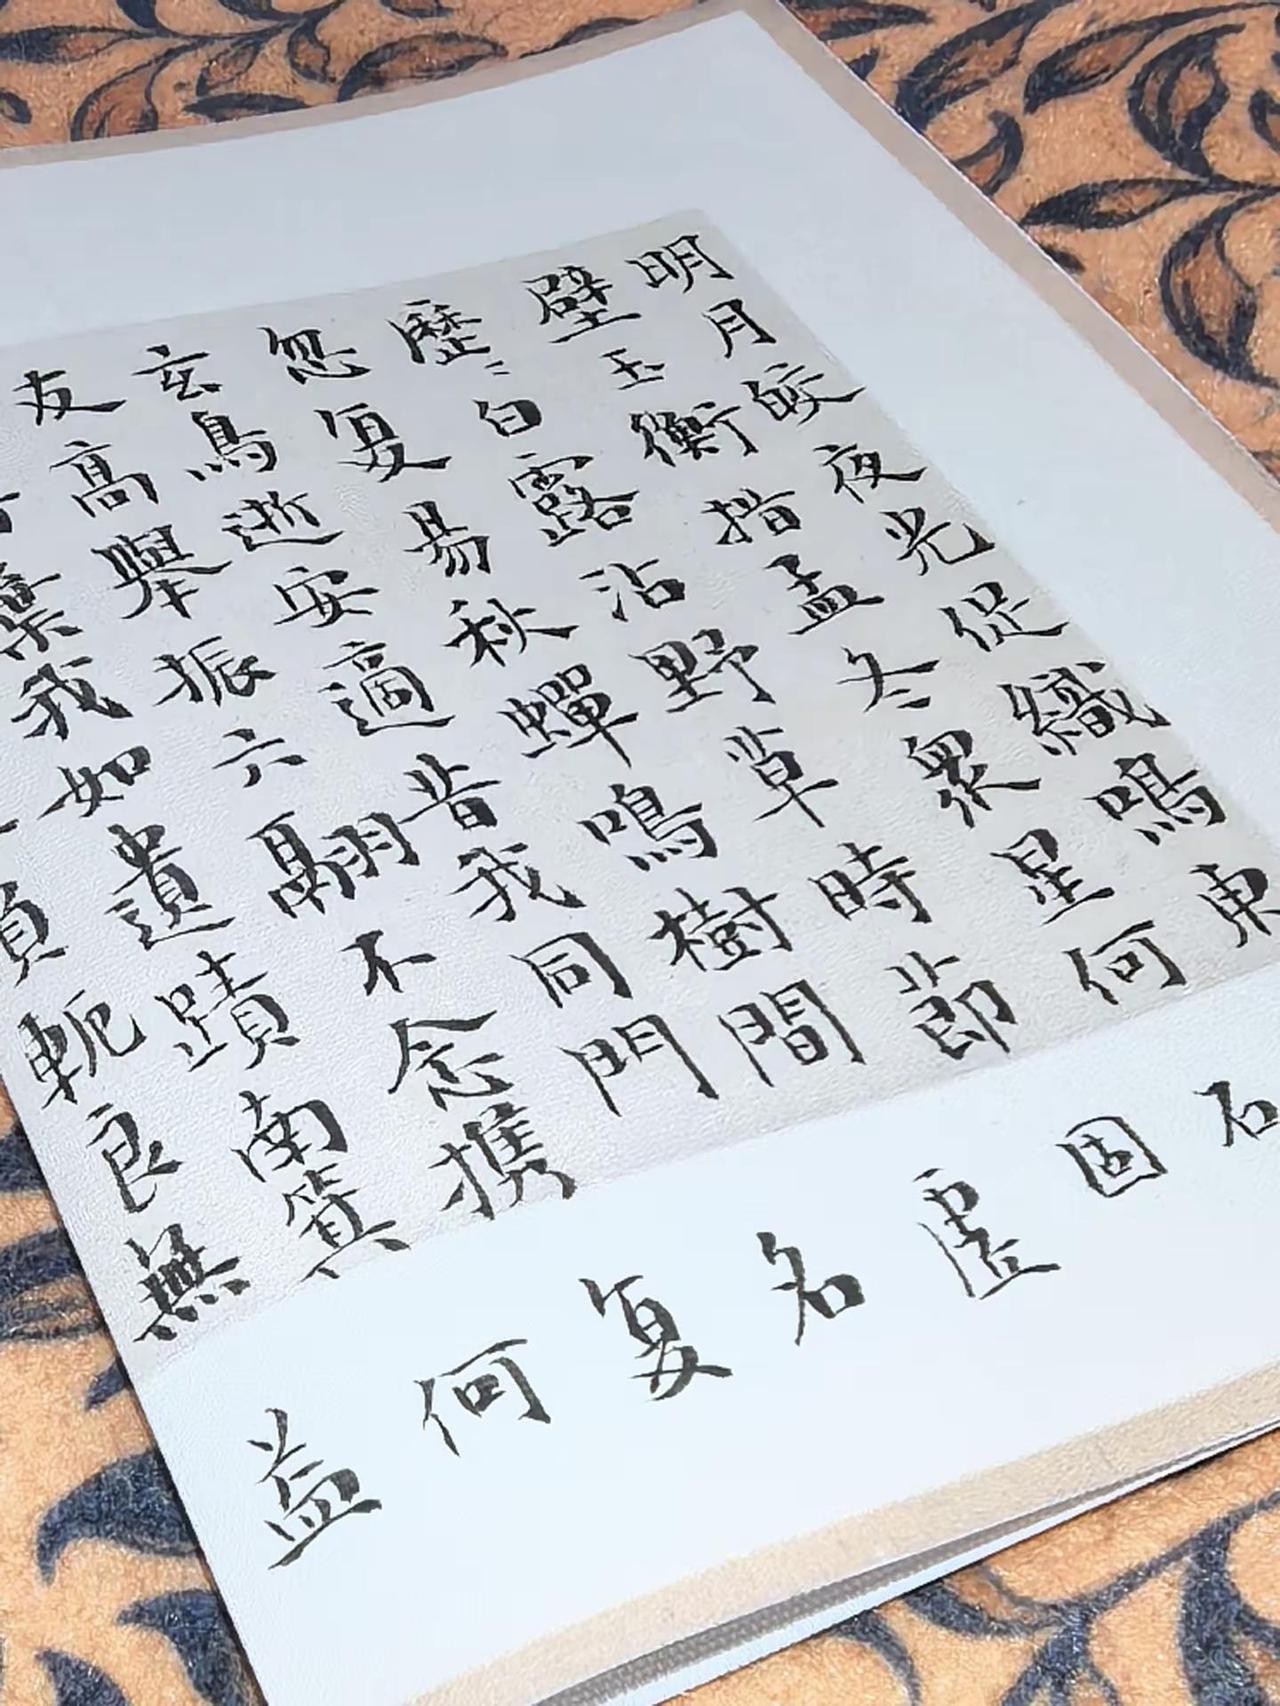 明月皎夜光促織鳴東
壁玉衡指孟冬眾星何
歷〻白露沾野草時節
忽复易秋蟬鳴樹間
玄鳥逝安適昔我同門
友高舉振六翮不念携
棄我如遺蹟南箕
負軛良無
石固虛名复何益